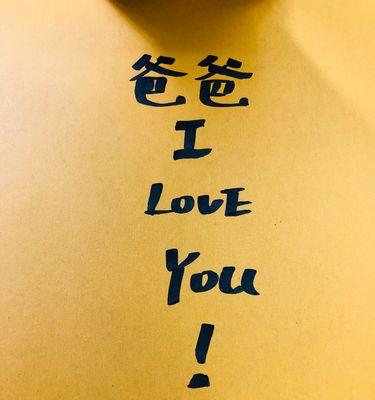 爸爸
I
LOVE
You
!